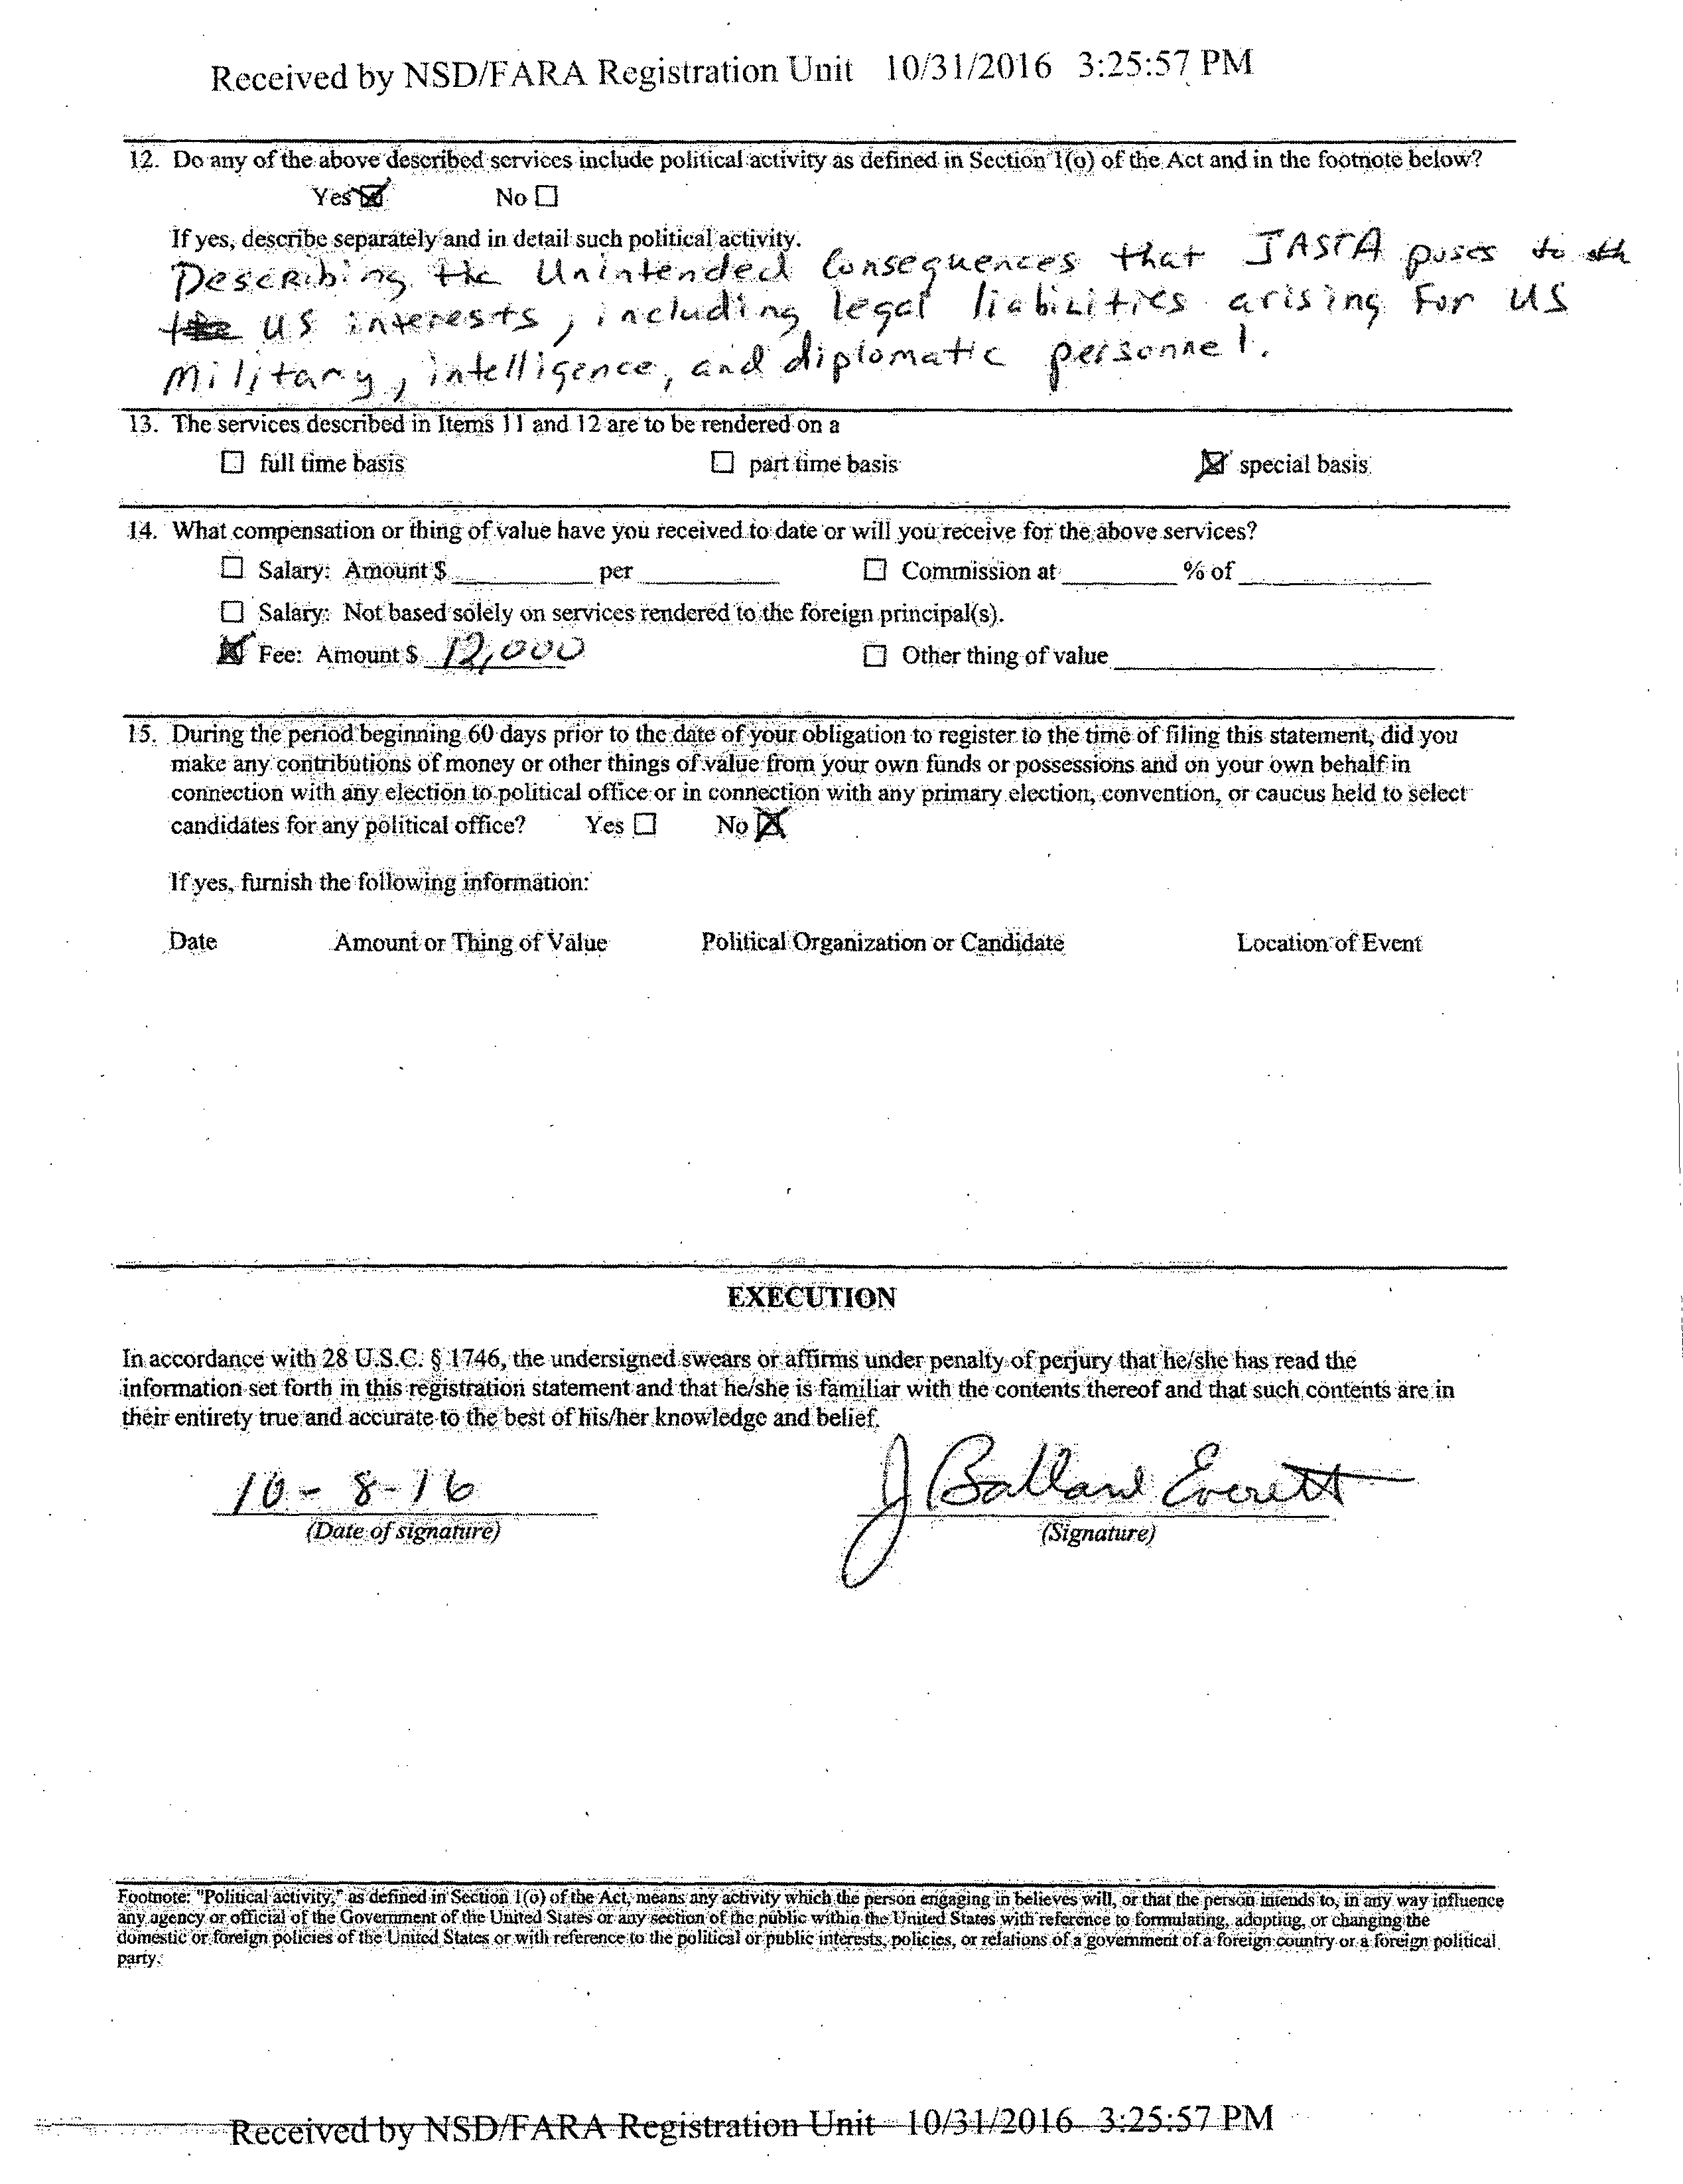 Received by NSD/FARA Registration Unit 10/31/2016 3:25:57 PM
12. Do any of the above described services include political activity as defined in Section 1(o) of the Act and in the footnote below?
Yes ☒ No ☐
If yes, describe separately and in detail such political activity.
Describing the Unintended Consequences that JASTA poses to th
the US interests, including legal liabilities arising For US
Military, intelligence, and diplomatic personnel.
13. The services described in Items 11 and 12 are to be rendered on a
☐ full time basis ☐ part time basis ☒ special basis
14. What compensation or thing of value have you received to date or will you receive for the above services?
☐ Salary: Amount $ ________ per ________ ☐ Commission at ________ % of ________
☐ Salary: Not based solely on services rendered to the foreign principal(s).
☒ Fee: Amount $ 12,000 ☐ Other thing of value ________
15. During the period beginning 60 days prior to the date of your obligation to register to the time of filing this statement, did you
make any contributions of money or other things of value from your own funds or possessions and on your own behalf in
connection with any election to political office or in connection with any primary election, convention, or caucus held to select
candidates for any political office? Yes ☐ No ☒
If yes, furnish the following information:
Date Amount or Thing of Value Political Organization or Candidate Location of Event
EXECUTION
In accordance with 28 U.S.C. § 1746, the undersigned swears or affirms under penalty of perjury that he/she has read the
information set forth in this registration statement and that he/she is familiar with the contents thereof and that such contents are in
their entirety true and accurate to the best of his/her knowledge and belief.
10-8-16 J Ballard Everett
(Date of signature) (Signature)
Footnote: "Political activity," as defined in Section 1(o) of the Act, means any activity which the person engaging in believes will, or that the person intends to, in any way influence
any agency or official of the Government of the United States or any section of the public within the United States with reference to formulating, adopting, or changing the
domestic or foreign policies of the United States or with reference to the political or public interests, policies, or relations of a government of a foreign country or a foreign political
party.
Received by NSD/FARA Registration Unit 10/31/2016 3:25:57 PM